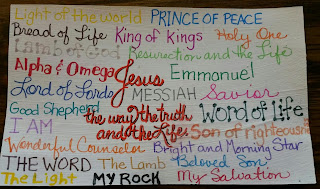 Light of the world PRINCE OF PEACE
Bread of Life King of Kings Holy One
Lamb of God Resurrection and the Life
Alpha & Omega Jesus Emmanuel
Lord of Lords MESSIAH Savior
Good Shepherd the way the truth Word of Life
I AM and the Life Son of righteousness
Wonderful Counselor Bright and Morning Star
THE WORD The Lamb Beloved Son
The Light MY ROCK My Salvation